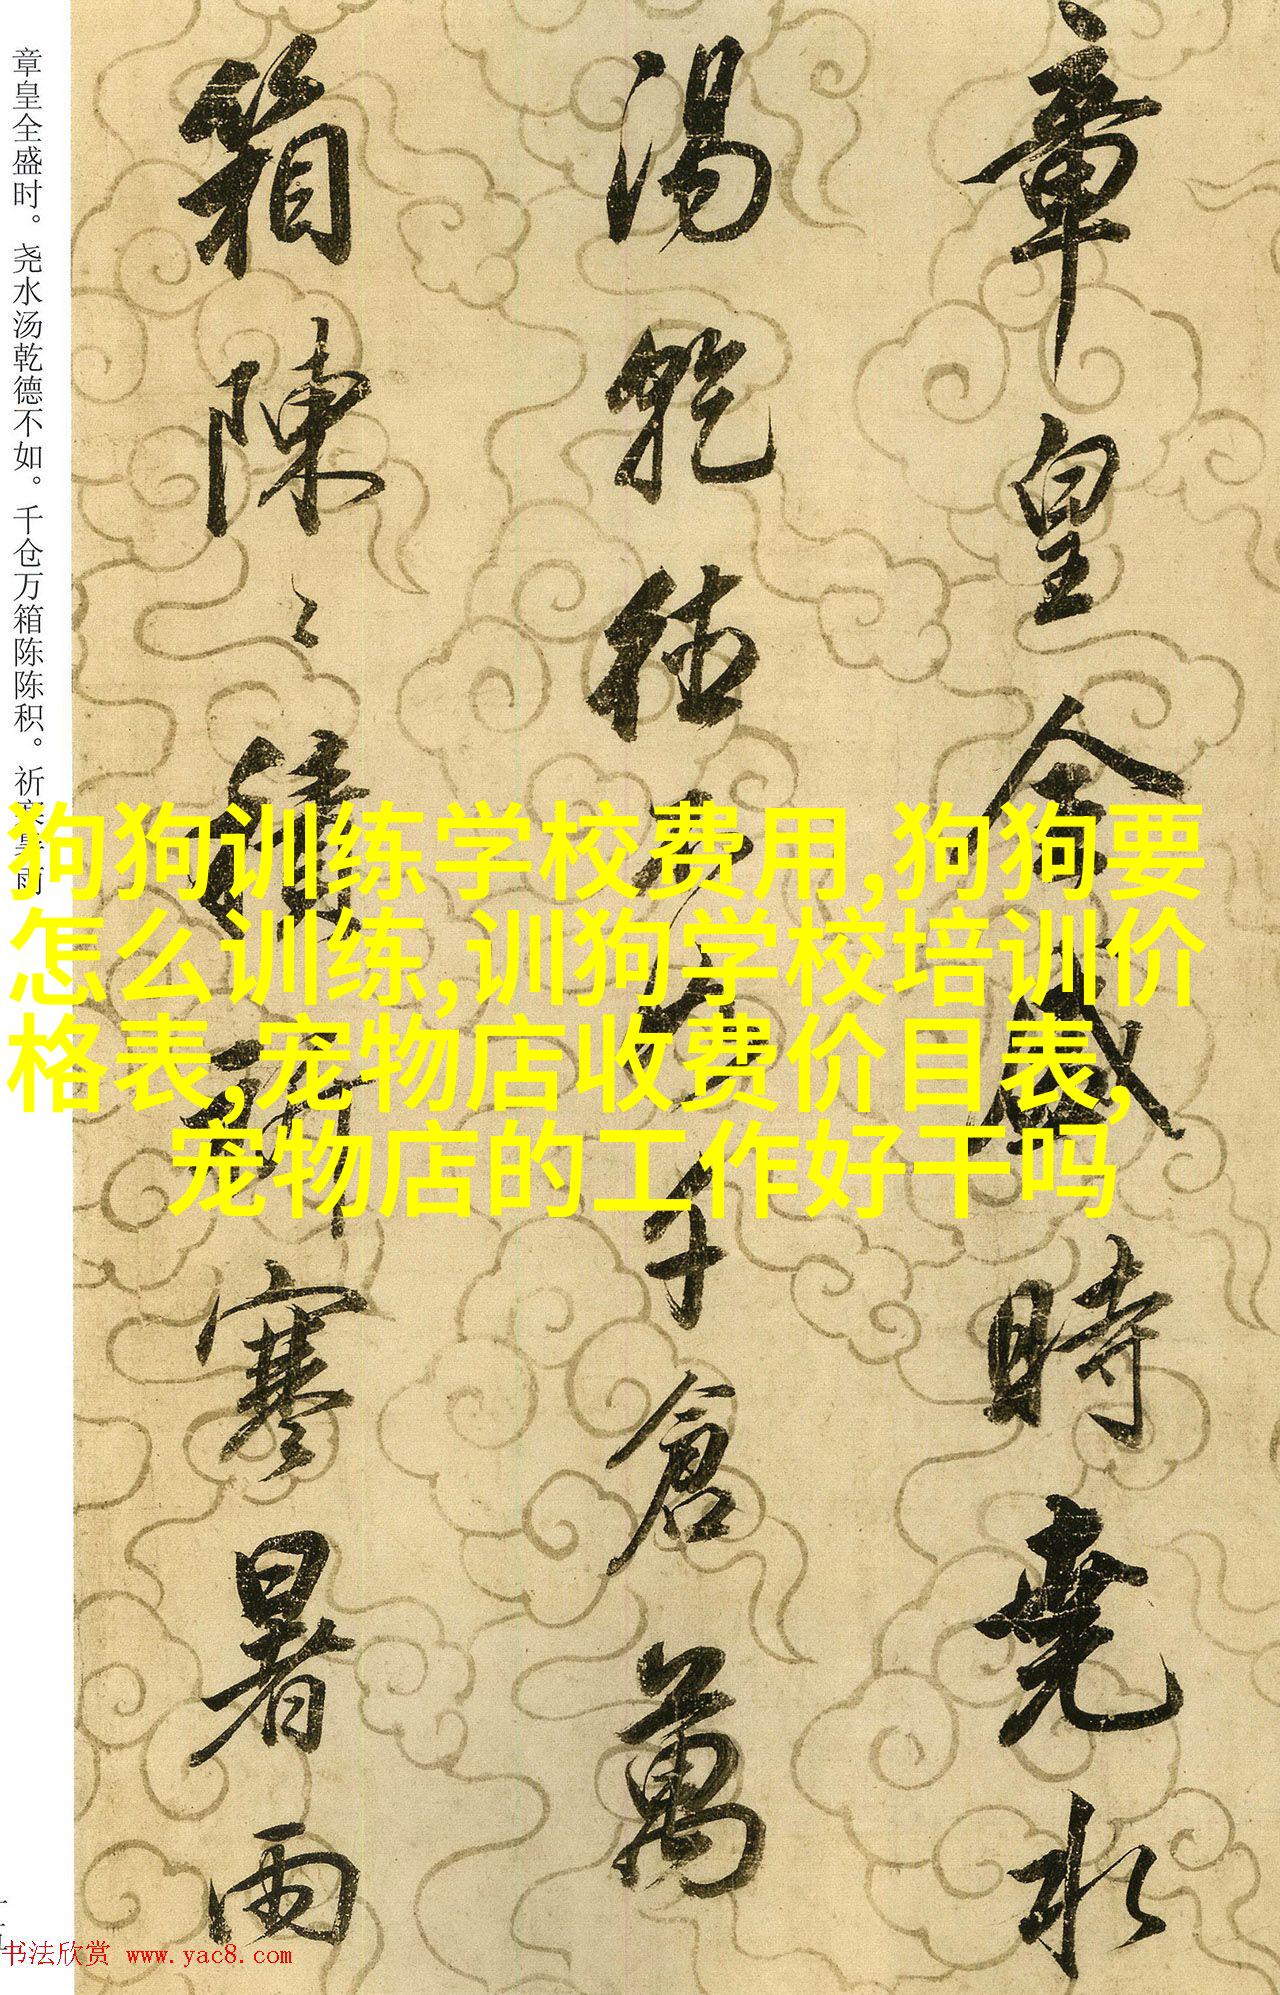 章皇全盛時堯水
湯乾德不如千倉萬
箱陳〻積祈寒暑雨
章皇全盛时。尧水汤乾德不如。千仓万箱陈陈积。祈寒暑雨
狗狗训练学校费用,狗狗要
怎么训练,训狗学校培训价
格表,宠物店收费价目表,
宠物店的工作好干吗
书法欣赏 www.yac8.com